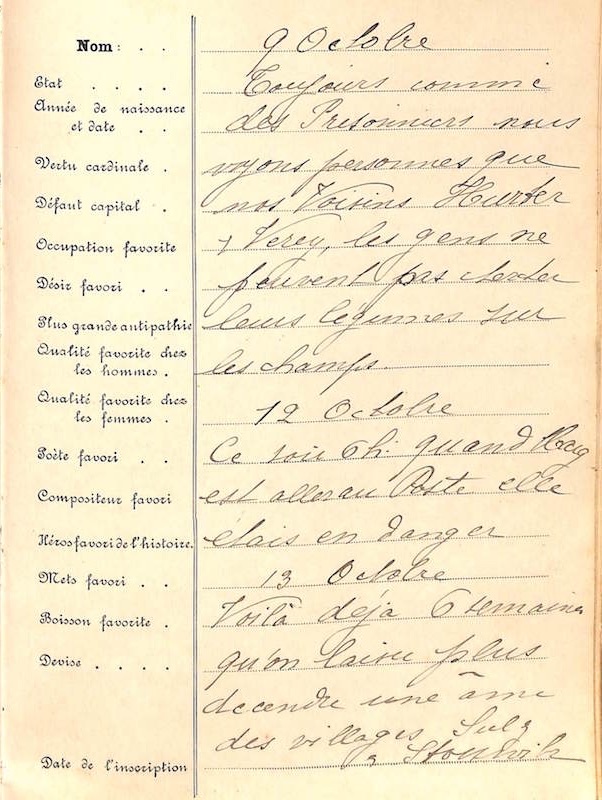 Nom : . . 9 Octobre
Etat . . . . Toujours comme
Année de naissance
et date . . des Prisonniers nous
Vertu cardinale . voyons personnes que
Défaut capital . nos Voisins Hurter
Occupation favorite + Verey, les gens ne
Désir favori . . peuvent pas
Plus grande antipathie leurs légumes sur
Qualité favorite chez
les hommes . les champs.
Qualité favorite chez
les femmes . 12 Octobre
Poète favori . . Ce soir 6h. quand Mag
Compositeur favori est aller au Poste elle
Héros favori de l'histoire. etais en danger
Mets favori . . 13 Octobre
Boisson favorite . Voilà déja 6 semaines
Devise . . . . qu'on laisse plus
decendre une âme
des villages Sulz
Date de l'inscription